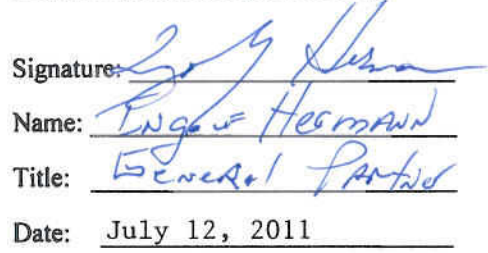 Signature:
Name: Ingolf Hermann
Title: General Partner
Date: July 12, 2011